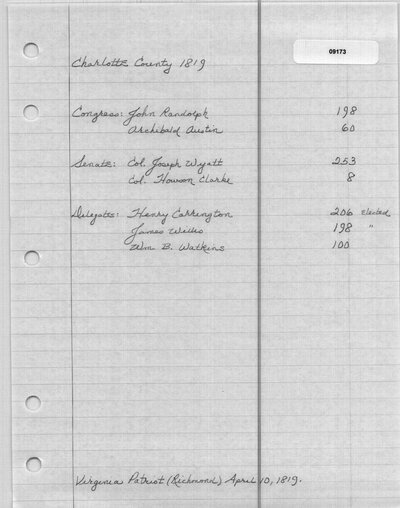 09173
Charlotte County 1819
Congress: John Randolph 198
Archibald Austin 60
Senate: Col. Joseph Wyatt 253
Col. Howson Clarke 8
Delegates: Henry Carrington 206 elected
James Wills 198 "
Wm B. Watkins 100
Virginia Patriot (Richmond) April 10, 1819.